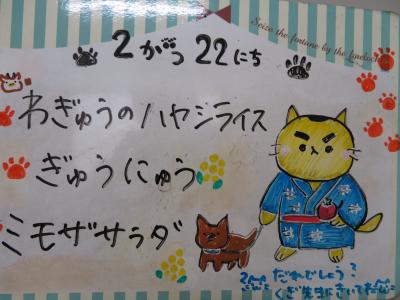 Seize the fortune by the forelock
2がつ22にち
わぎゅうのハヤシライス
ぎゅうにゅう
ミモザサラダ
だれでしょう?
くぎ先生にきいてね